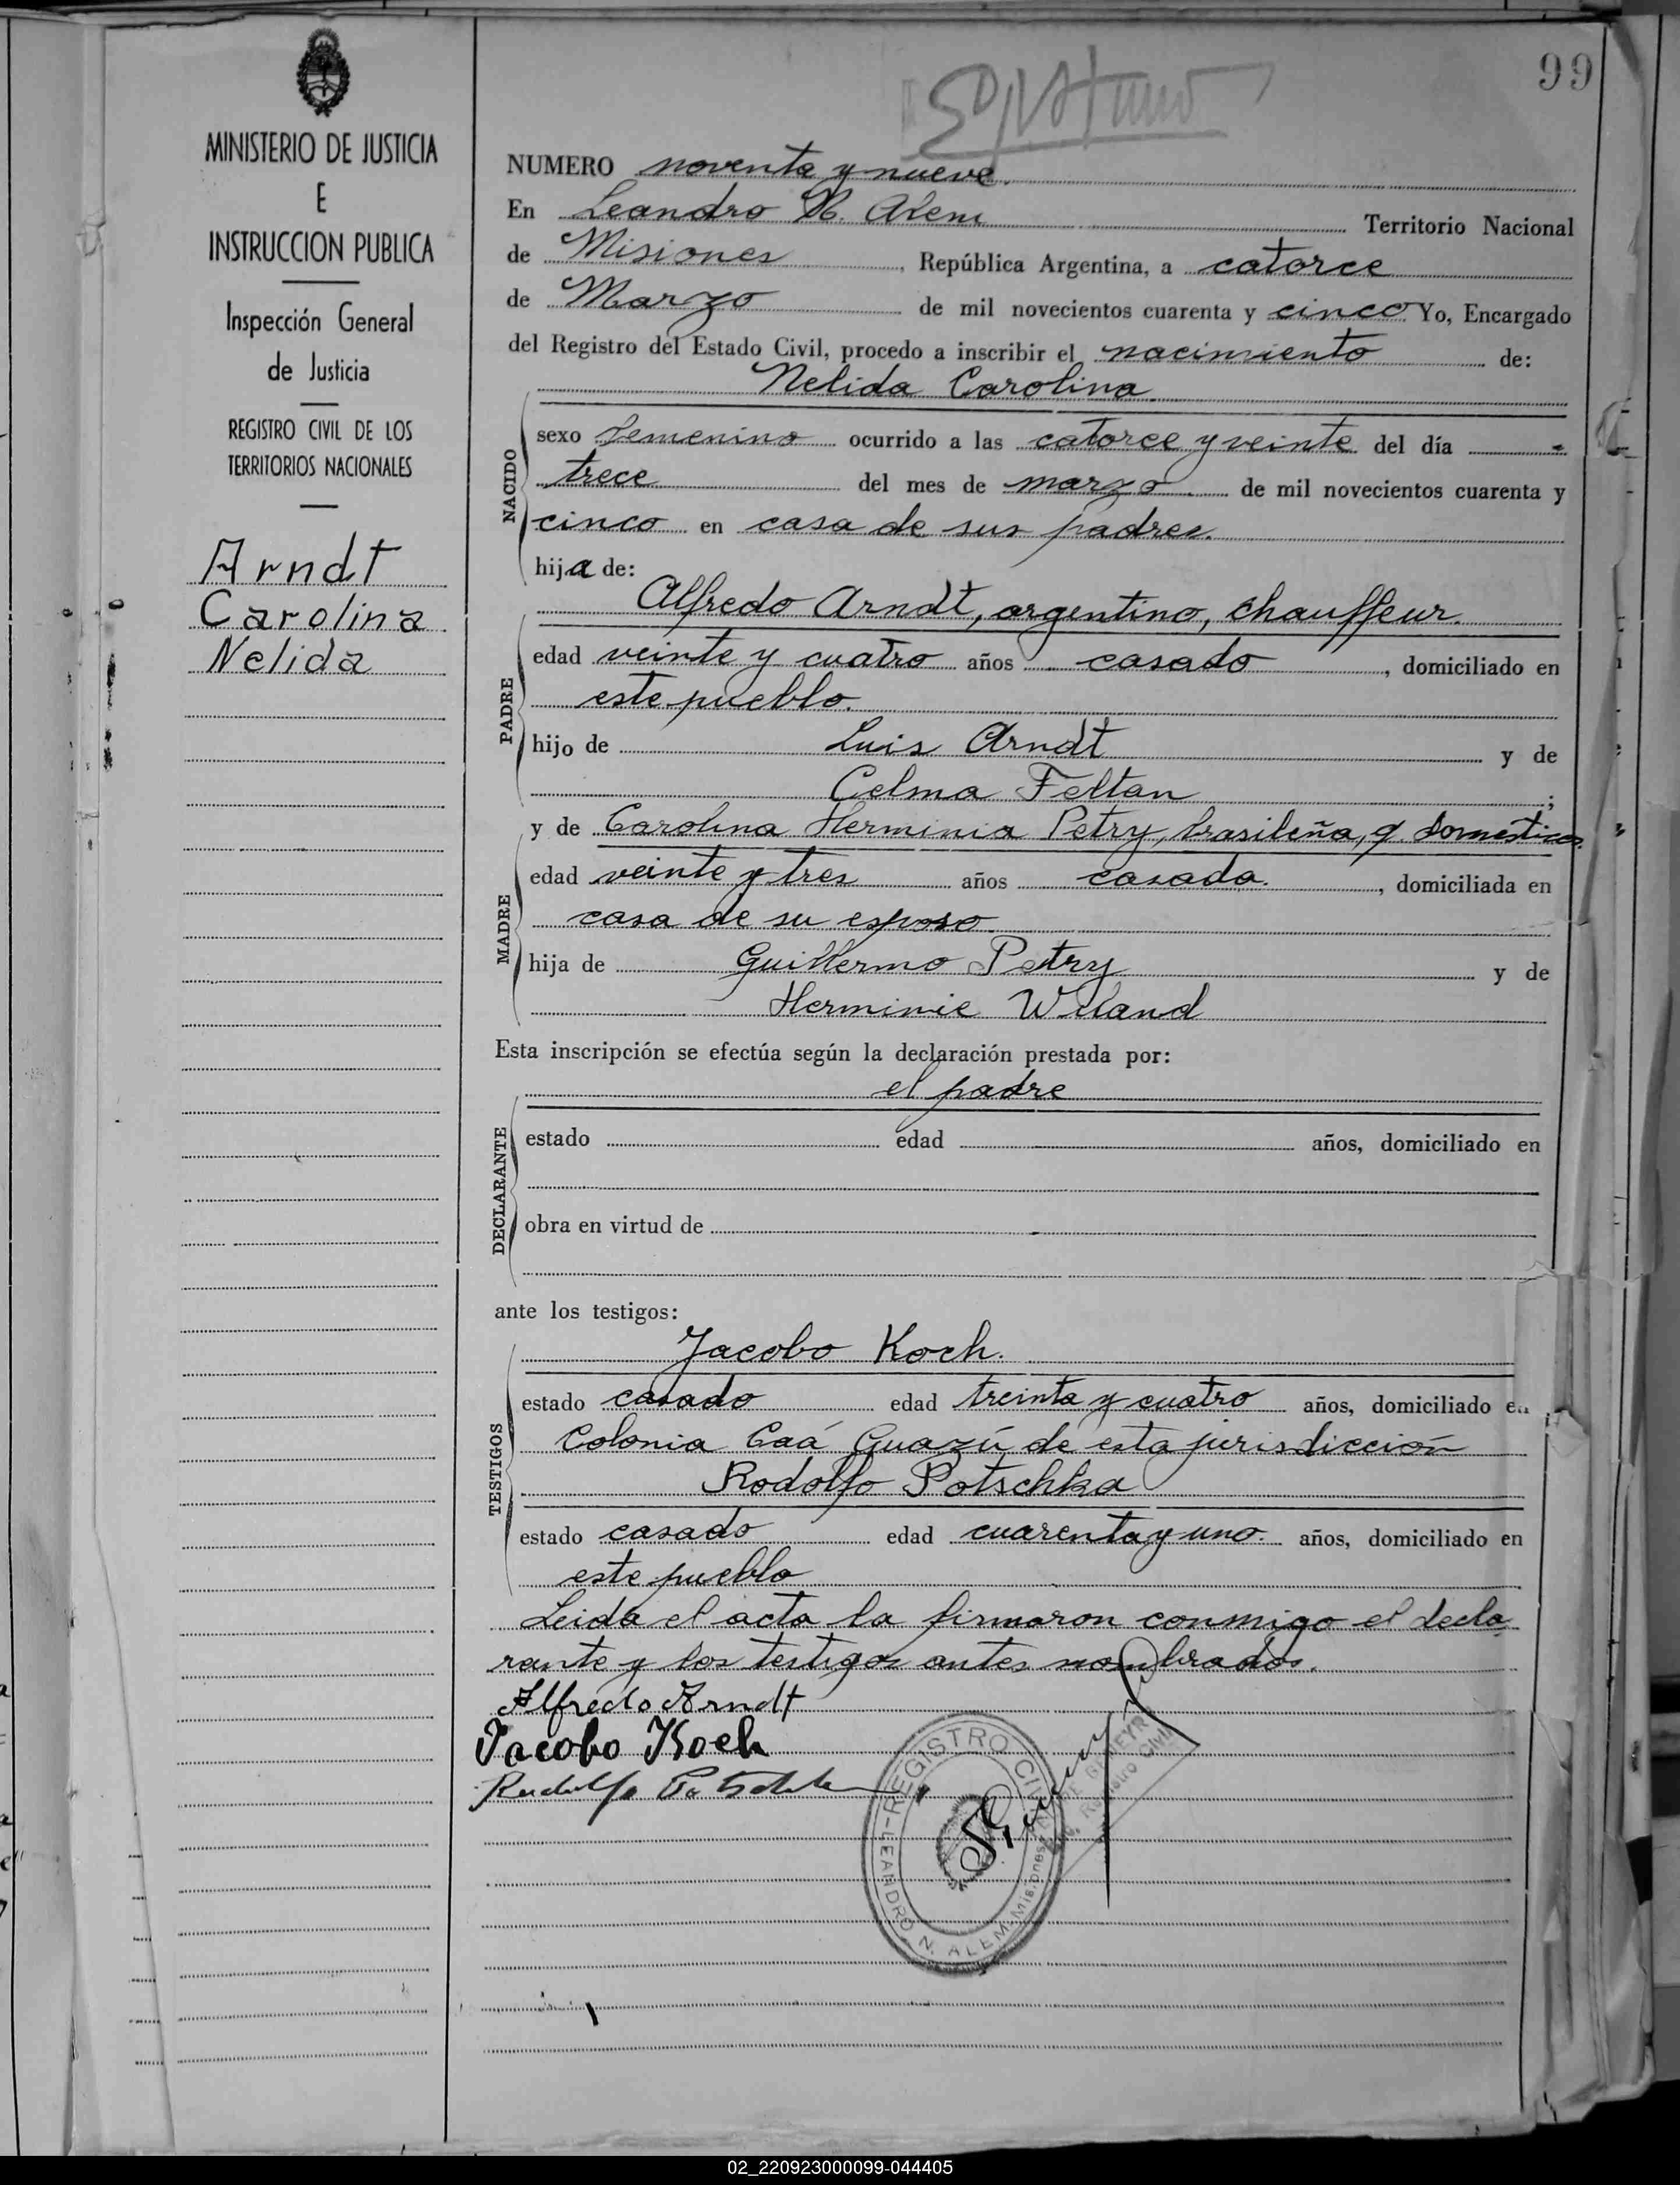 99
MINISTERIO DE JUSTICIA
E
INSTRUCCION PUBLICA
Inspección General
de Justicia
REGISTRO CIVIL DE LOS
TERRITORIOS NACIONALES
Arndt
Carolina
Nelida
NUMERO noventa y nueve.
En Leandro N. Alem Territorio Nacional
de Misiones, República Argentina, a catorce
de Marzo de mil novecientos cuarenta y cinco Yo, Encargado
del Registro del Estado Civil, procedo a inscribir el nacimiento de:
Nelida Carolina
NACIDO
sexo femenino ocurrido a las catorce y veinte del día -
trece del mes de marzo de mil novecientos cuarenta y
cinco en casa de sus padres.
hija de:
PADRE
Alfredo Arndt, argentino, chauffeur.
edad veinte y cuatro años casado, domiciliado en
este pueblo.
hijo de Luis Arndt y de
Celma Feltan;
MADRE
y de Carolina Herminia Petry, brasileña, q. domesticos.
edad veinte y tres años casada., domiciliada en
casa de su esposo
hija de Guillermo Petry y de
Herminie Wiland
Esta inscripción se efectúa según la declaración prestada por:
el padre
DECLARANTE
estado edad años, domiciliado en
obra en virtud de
ante los testigos:
TESTIGOS
Jacobo Koch.
estado casado edad treinta y cuatro años, domiciliado en
Colonia Caá Guazú de esta jurisdicción
Rodolfo Potschka
estado casado edad cuarenta y uno. años, domiciliado en
este pueblo
Leida el acta la firmaron conmigo el decla
rante y los testigos antes nombrados.
Alfredo Arndt
Jacobo Koch
Rudolfo Potschka
REGISTRO CIVIL
LEANDRO N. ALEM-Misiones
Registro Civil
02_220923000099-044405